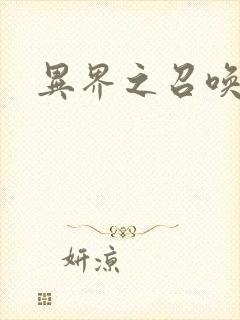 異界之召喚
妍涼